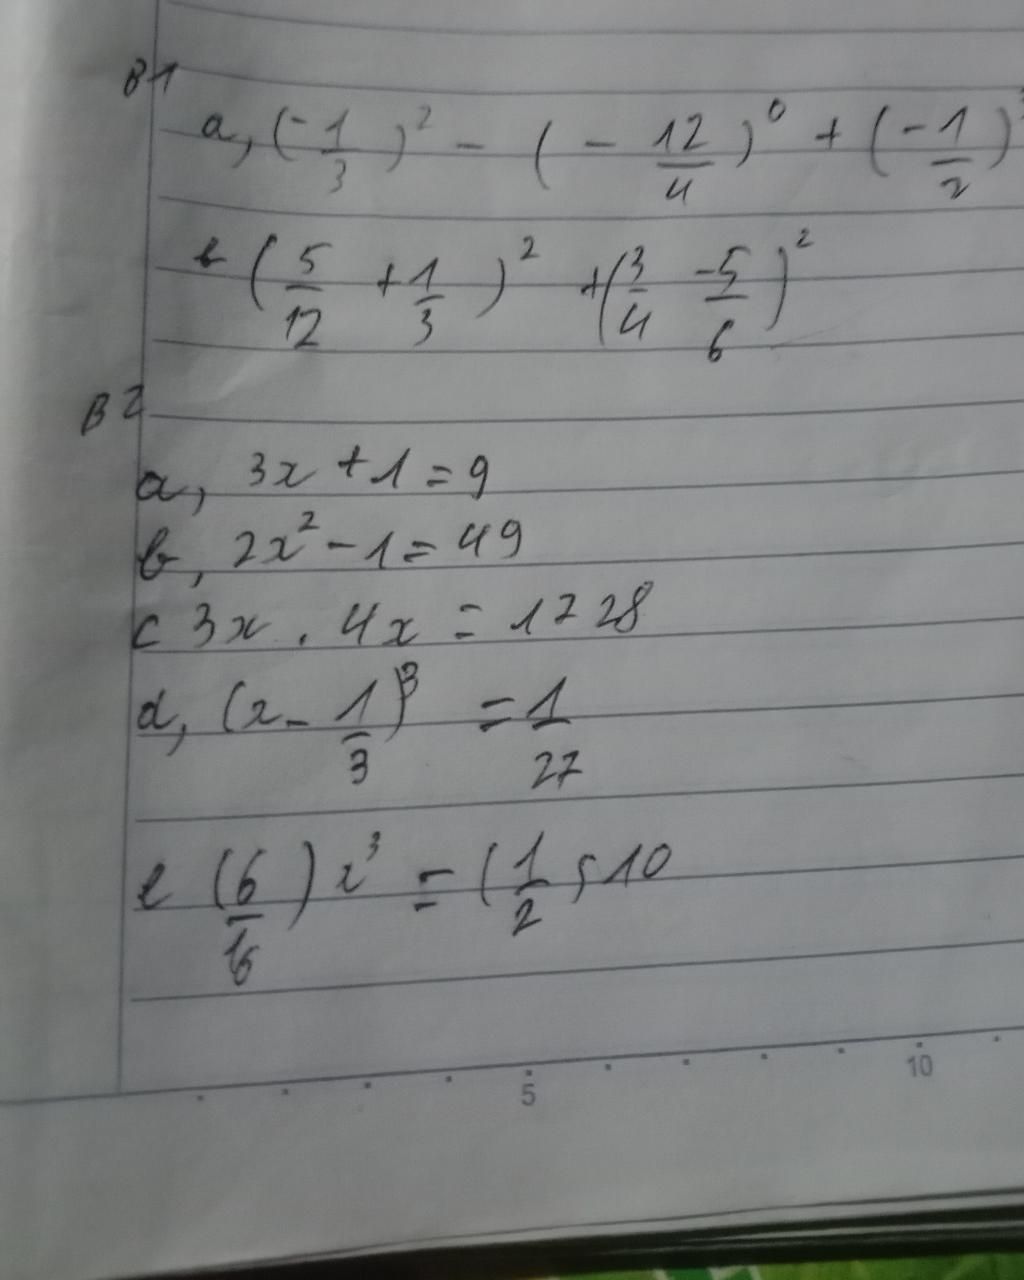 B1
a, (-1/3)² - (-12/4)⁰ + (-1/2)
b (5/12 + 1/3)² + (3/4 - 5/6)²
B2
a, 3x + 1 = 9
b, 2x² - 1 = 49
c 3x . 4x = 1728
d, (x - 1/3)³ = 1/27
e (6/16) x³ = (1/2 ) 10
5 10